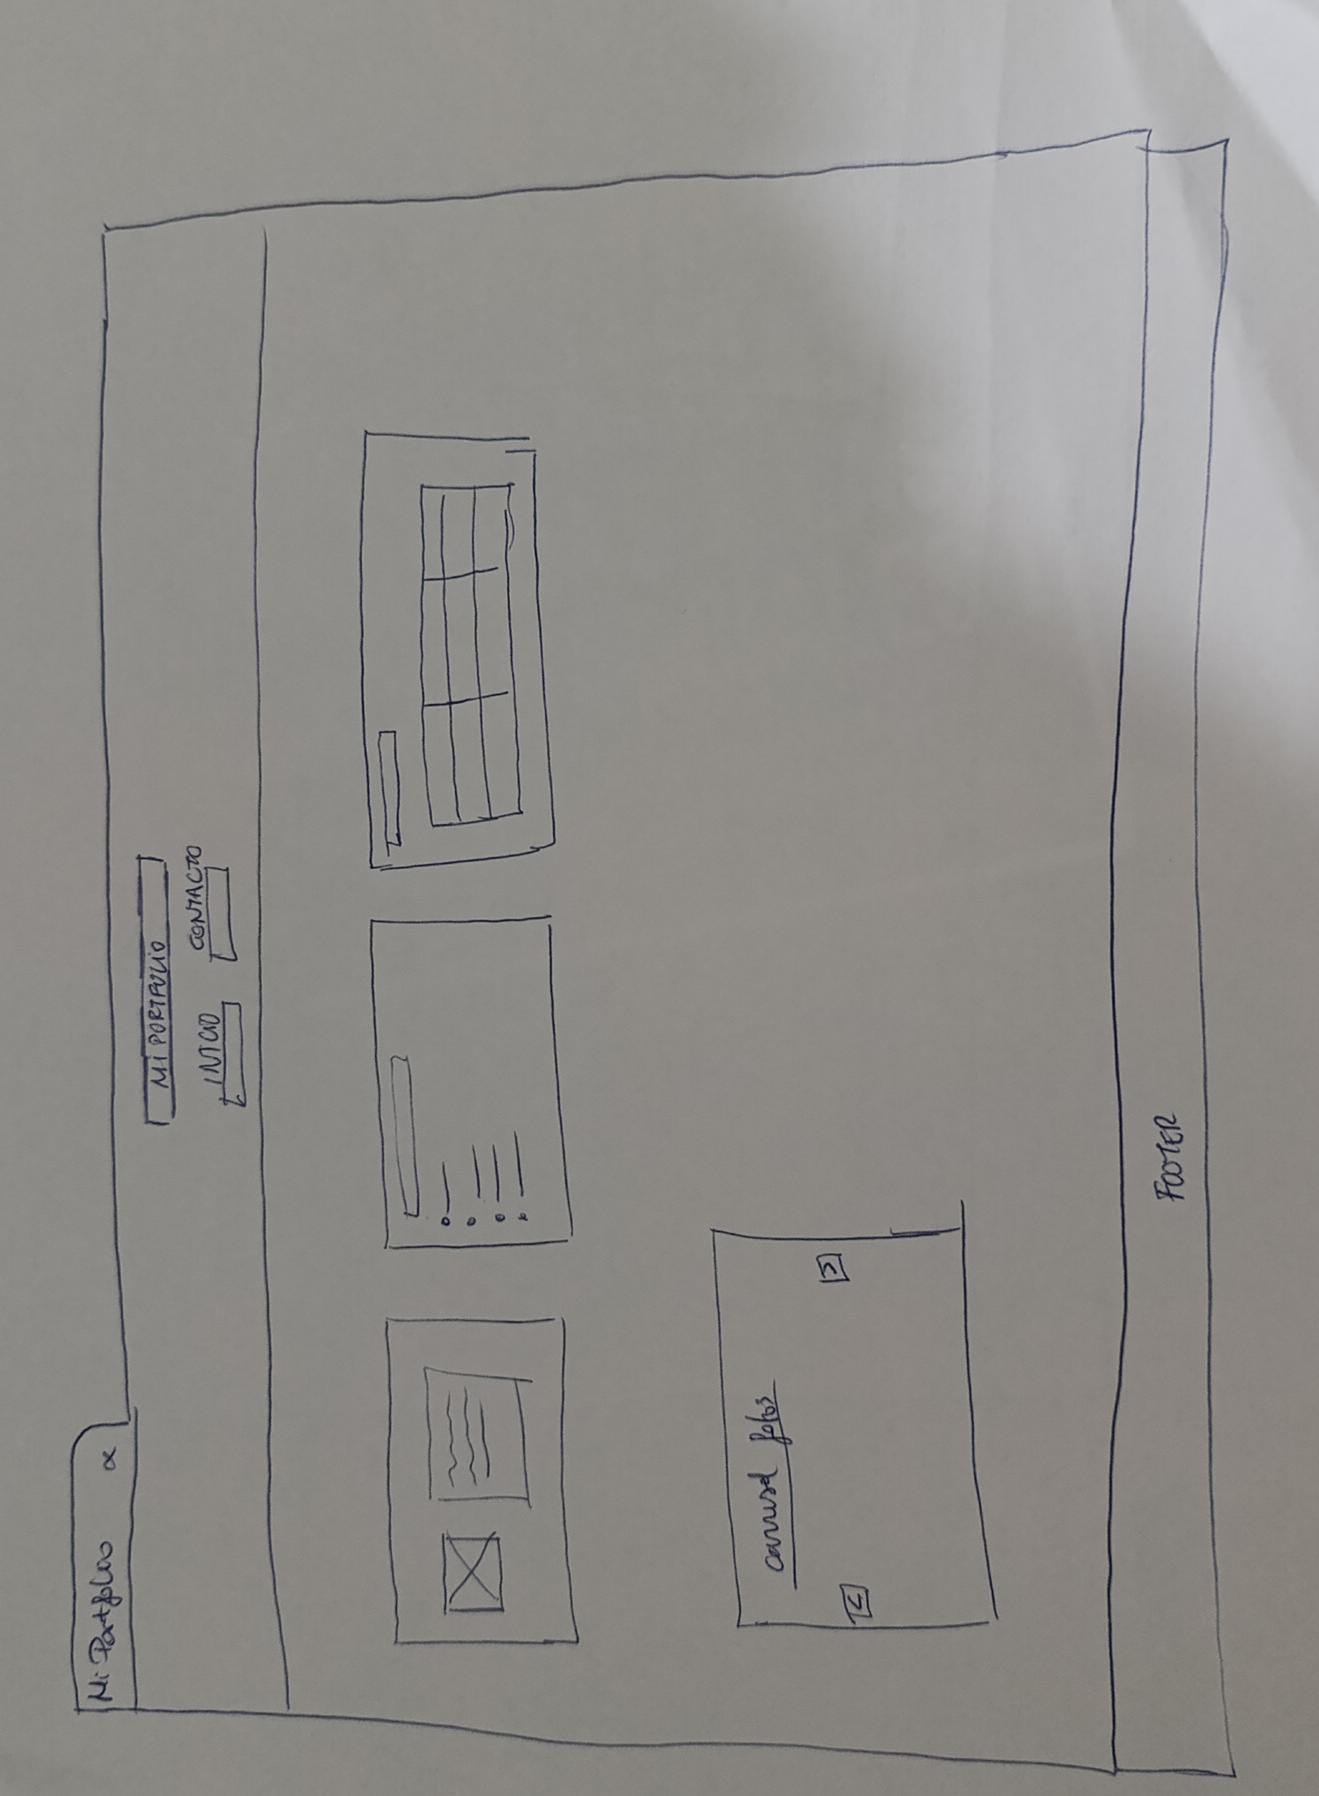 Mi Portfolio x
MI PORTFOLIO
INICIO CONTACTO
carrusel fotos
< >
FOOTER